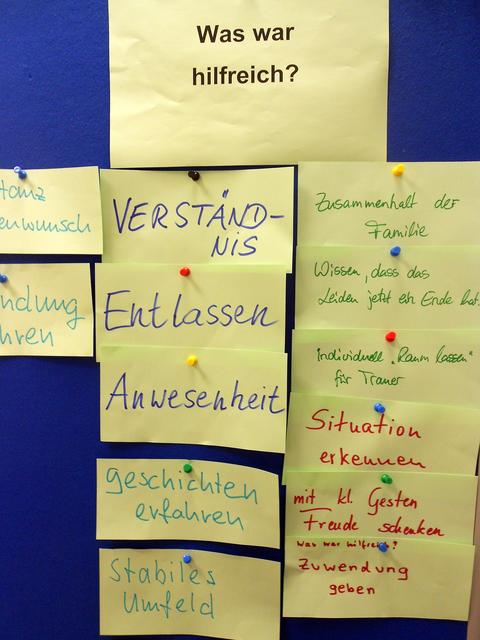 Was war
hilfreich?
VERSTÄND-
NIS
Entlassen
Anwesenheit
geschichten
erfahren
Stabiles
Umfeld
Zusammenhalt der
Familie
Wissen, dass das
Leiden jetzt ein Ende hat.
individuell "Raum lassen"
für Trauer
Situation
erkennen
mit kl. Gesten
Freude schenken
was war hilfreich?
Zuwendung
geben
tanz
enwunsch
ndung
hren